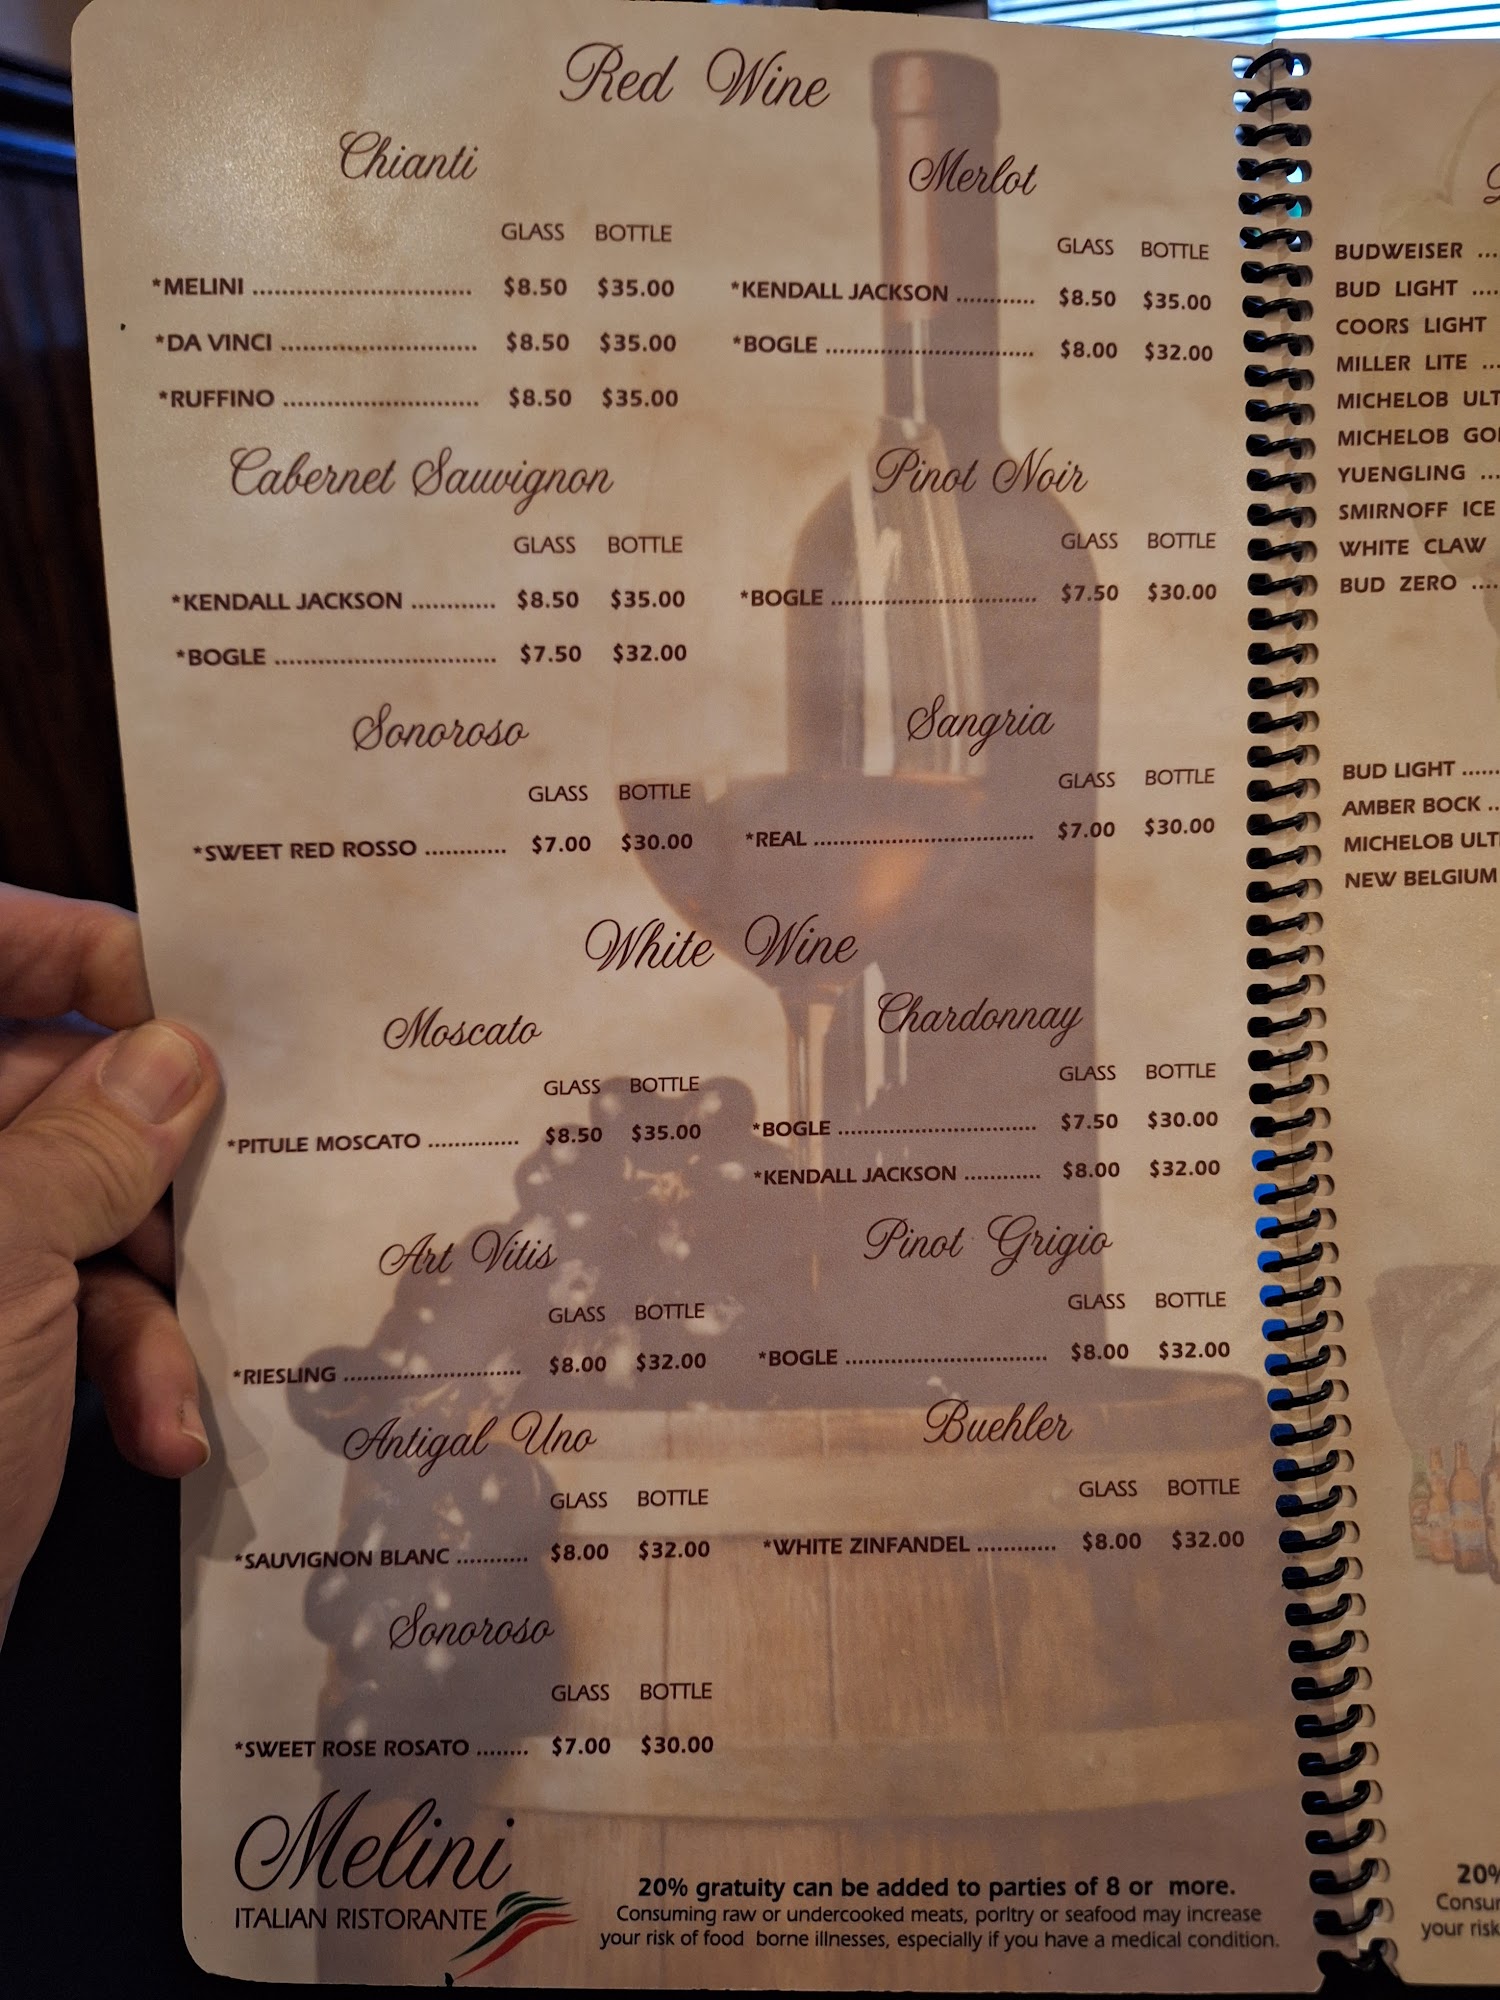 Red Wine
Chianti
GLASS BOTTLE
*MELINI ............................. $8.50 $35.00
*DA VINCI .......................... $8.50 $35.00
*RUFFINO .......................... $8.50 $35.00
Merlot
GLASS BOTTLE
*KENDALL JACKSON ........... $8.50 $35.00
*BOGLE ............................. $8.00 $32.00
Cabernet Sauvignon
GLASS BOTTLE
*KENDALL JACKSON ............ $8.50 $35.00
*BOGLE ............................... $7.50 $32.00
Pinot Noir
GLASS BOTTLE
*BOGLE ............................. $7.50 $30.00
Sonoroso
GLASS BOTTLE
*SWEET RED ROSSO ............ $7.00 $30.00
Sangria
GLASS BOTTLE
*REAL ................................ $7.00 $30.00
White Wine
Moscato
GLASS BOTTLE
*PITULE MOSCATO .............. $8.50 $35.00
Chardonnay
GLASS BOTTLE
*BOGLE ............................. $7.50 $30.00
*KENDALL JACKSON ........... $8.00 $32.00
Art Vitis
GLASS BOTTLE
*RIESLING ........................... $8.00 $32.00
Pinot Grigio
GLASS BOTTLE
*BOGLE ............................. $8.00 $32.00
Antigal Uno
GLASS BOTTLE
*SAUVIGNON BLANC ........... $8.00 $32.00
Buehler
GLASS BOTTLE
*WHITE ZINFANDEL ............ $8.00 $32.00
Sonoroso
GLASS BOTTLE
*SWEET ROSE ROSATO ........ $7.00 $30.00
Melini
ITALIAN RISTORANTE
20% gratuity can be added to parties of 8 or more.
Consuming raw or undercooked meats, porltry or seafood may increase
your risk of food borne illnesses, especially if you have a medical condition.
BUDWEISER ...
BUD LIGHT ....
COORS LIGHT
MILLER LITE ...
MICHELOB
MICHELOB
YUENGLING ...
SMIRNOFF ICE
WHITE CLAW
BUD ZERO ....
BUD LIGHT ......
AMBER BOCK ..
MICHELOB
NEW BELGIUM
20%
your risk